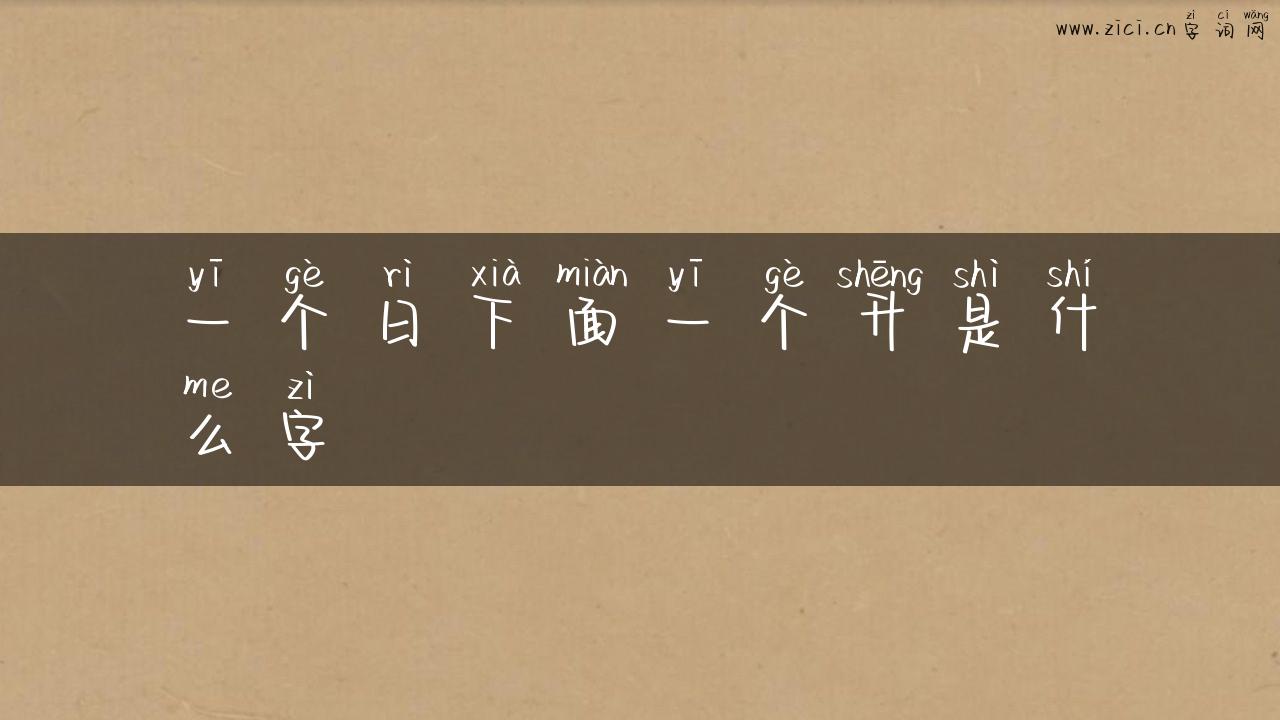 www.zici.cn字词网
zì cí wǎng
yī gè rì xià miàn yī gè shēng shì shí
一个日下面一个升是什
me zì
么字